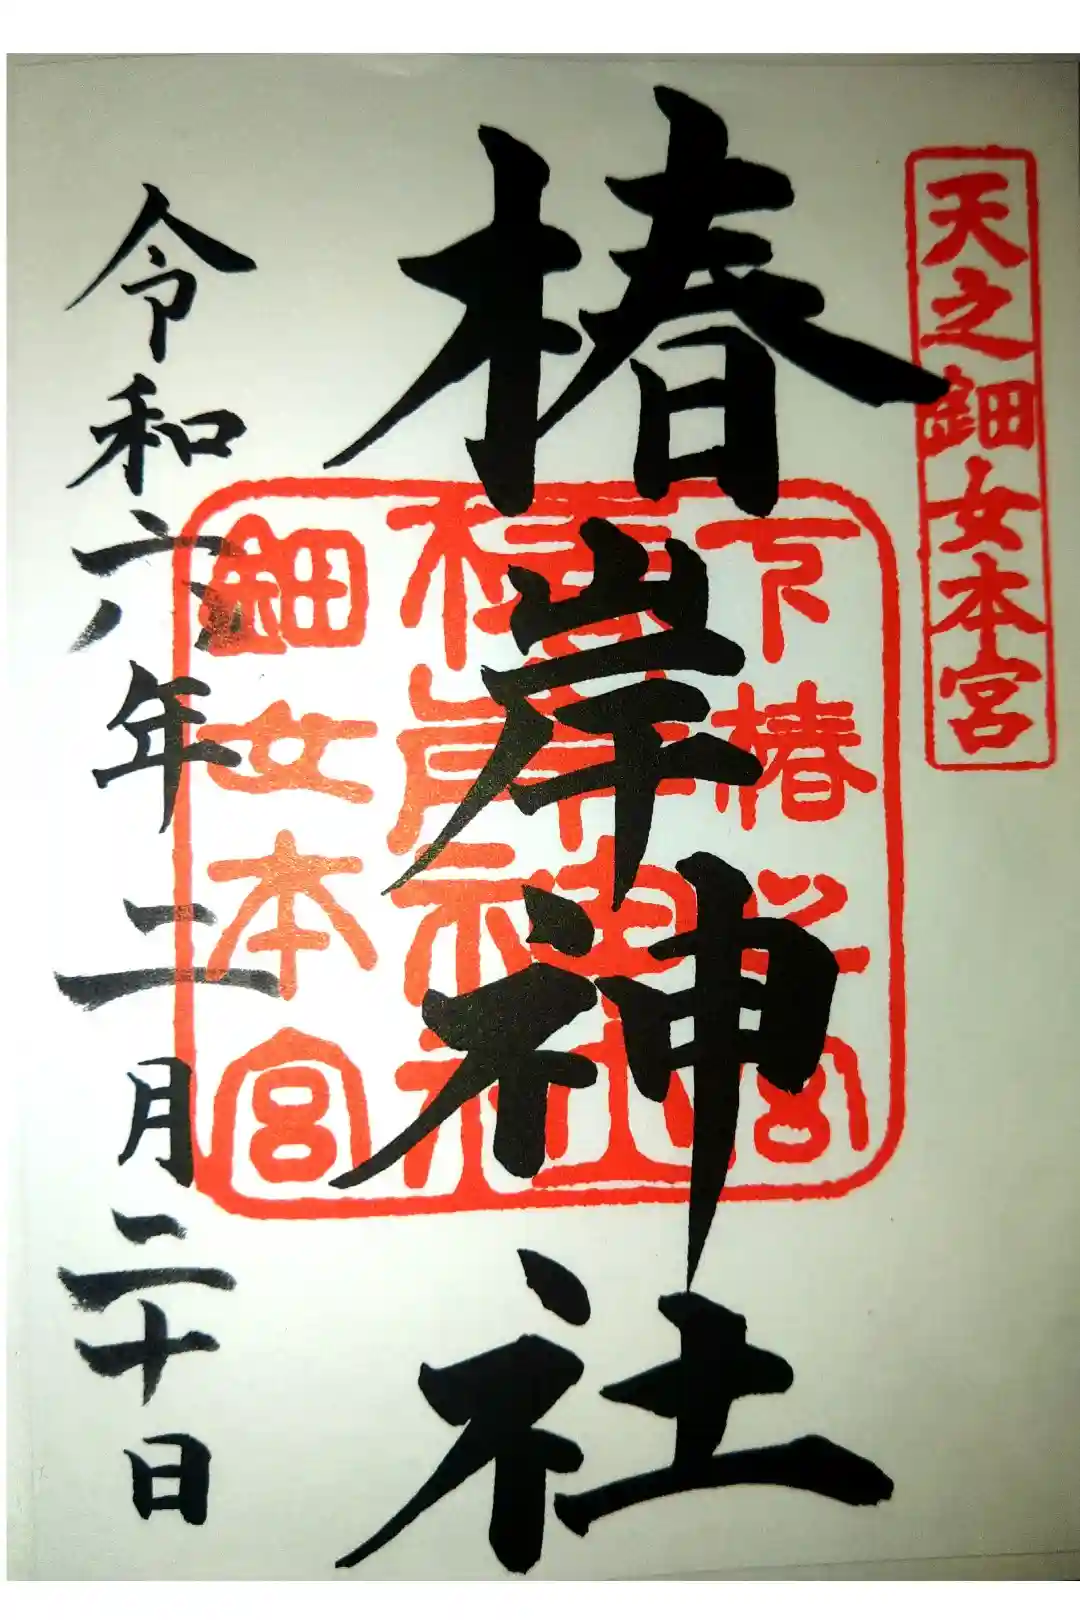 天之鈿女本宮
椿岸神社
下椿
椿岸神社
鈿女本宮
令和六年二月二十日